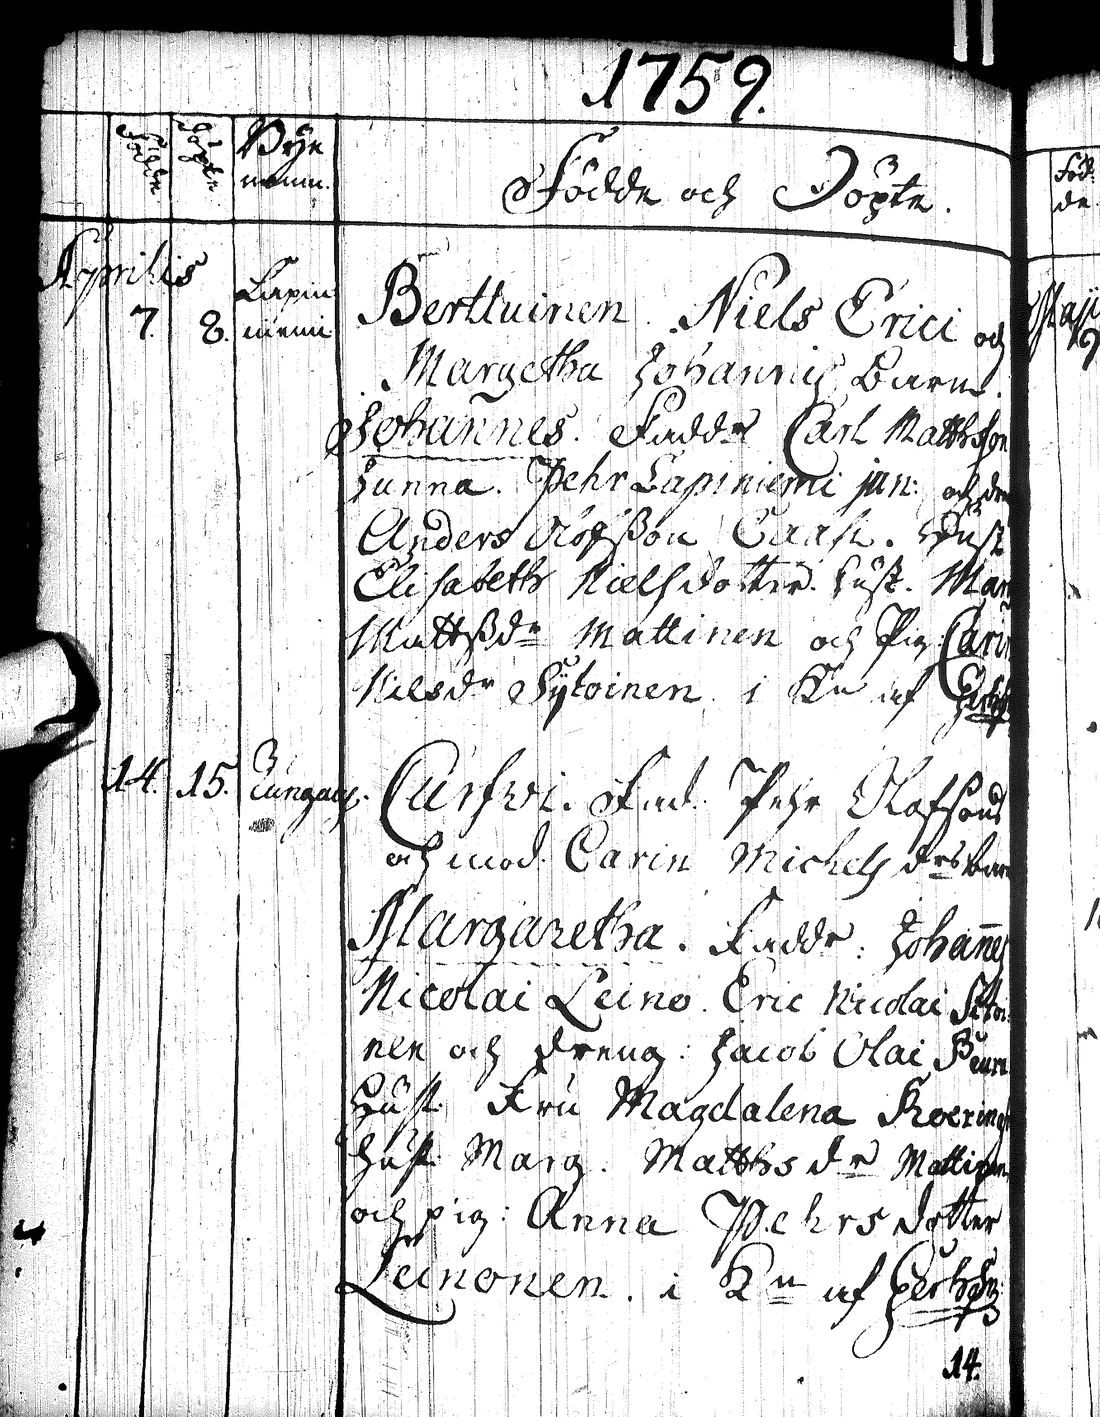 1759.
Födde
Döpte
Bye
namn.
Födde och Döpte.
Aprilis
7. 8. Lapin
niemi
Berttuinen. Niels Erici och
Margetha Johannis Barn.
Johannes. Fadd. Carl Matthsson
Junna. Pehr Lapiniemi jun: och dr
Anders Hust
Elisabeth Nielsdotter. Hust. Mar
Mattsdr Mattinen och Pig: Carin
Nilsdr Sytoinen. i Kn af
14. 15. Cursvi. Fad. Pehr Olofsons
och mod. Carin Michels drs barn
Margaretha. Faddr: Johannes
Nicolai Leino. Eric Nicolai
nen och dreng: Jacob Olai
Hust. Fru Magdalena
Hust. Marg. Matthsdr Mattinen
och pig: Anna Pehrsdotter
Leinonen. i Kn af
14.
Föd-
de
Maji